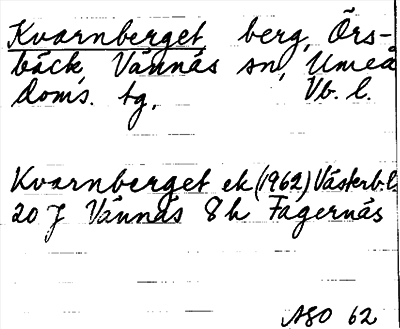 Kvarnberget berg, Örs-
bäck, Vännäs sn, Umeå
doms. tg, Vb. l.
Kvarnberget ek (1962) Västerb.l.
20 J Vännäs 8h Fagernäs
ASO 62